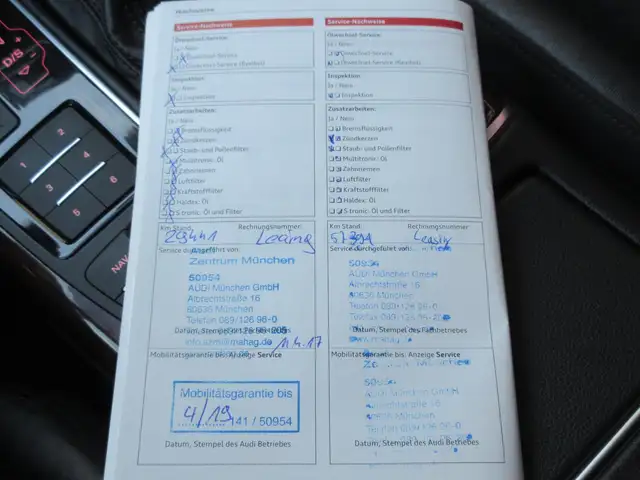 Nachweise
Service-Nachweise
Ölwechsel-Service:
Ja / Nein
Ölwechsel-Service
Ölwechsel-Service (flexibel)
Inspektion
Ja / Nein
Inspektion
Zusatzarbeiten:
Ja / Nein
Bremsflüssigkeit
Zündkerzen
Staub- und Pollenfilter
Multitronic: Öl
Zahnriemen
Luftfilter
Kraftstofffilter
Haldex: Öl
S tronic: Öl und Filter
Km Stand Rechnungsnummer
29441 Leasing
Service durchgeführt von:
Zentrum München
50954
AUDI München GmbH
Albrechtstraße 16
80636 München
Telefon 089/126 96-0
Datum, Stempel des
11.4.17
Mobilitätsgarantie bis: Anzeige Service
Mobilitätsgarantie bis
4/19 141 / 50954
Datum, Stempel des Audi Betriebes
Service-Nachweise
Ölwechsel-Service:
Ja / Nein
Ölwechsel-Service
Ölwechsel-Service (flexibel)
Inspektion
Ja / Nein
Inspektion
Zusatzarbeiten:
Ja / Nein
Bremsflüssigkeit
Zündkerzen
Staub- und Pollenfilter
Multitronic: Öl
Zahnriemen
Luftfilter
Kraftstofffilter
Haldex: Öl
S tronic: Öl und Filter
Km Stand Rechnungsnummer
Service durchgeführt von:
50954
AUDI München GmbH
Albrechtstraße 16
80636 München
Telefon 089/126 96-0
Datum, Stempel des
Mobilitätsgarantie bis: Anzeige Service
AUDI München GmbH
München
Datum, Stempel des Audi Betriebes
D/S
1
2
3
4
5
6
NAV